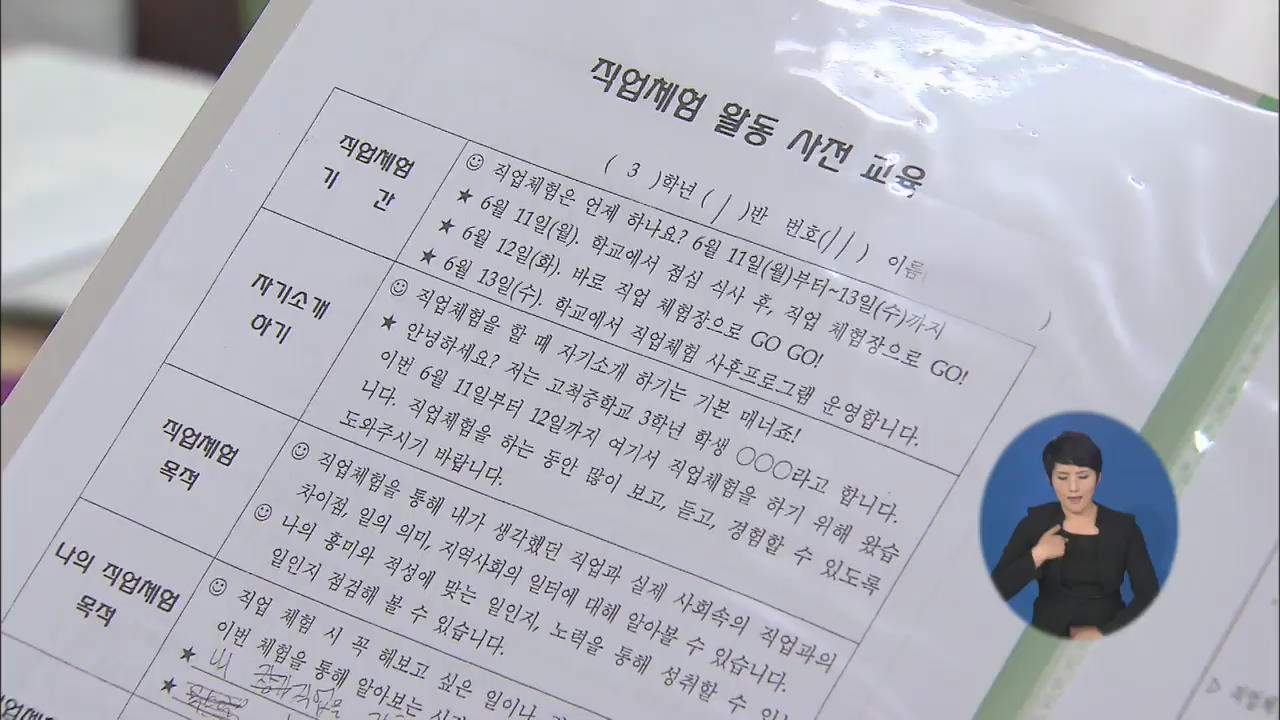 직업체험 활동 사전 교육
( 3 )학년 ( / )반 번호( // ) 이름 )
직업체험
기 간
☺ 직업체험은 언제 하나요? 6월 11일(월)부터~13일(수)까지
★ 6월 11일(월). 학교에서 점심 식사 후, 직업 체험장으로 GO!
★ 6월 12일(화). 바로 직업 체험장으로 GO GO!
★ 6월 13일(수). 학교에서 직업체험 사후프로그램 운영합니다.
자기소개
하기
☺ 직업체험을 할 때 자기소개 하기는 기본 매너죠!
★ 안녕하세요? 저는 고척중학교 3학년 학생 ○○○라고 합니다.
이번 6월 11일부터 12일까지 여기서 직업체험을 하기 위해 왔습
니다. 직업체험을 하는 동안 많이 보고, 듣고, 경험할 수 있도록
도와주시기 바랍니다.
직업체험
목적
☺ 직업체험을 통해 내가 생각했던 직업과 실제 사회속의 직업과의
차이점, 일의 의미, 지역사회의 일터에 대해 알아볼 수 있습니다.
☺ 나의 흥미와 적성에 맞는 일인지, 노력을 통해 성취할 수 있
일인지 점검해 볼 수 있습니다.
나의 직업체험
목적
☺ 직업 체험 시 꼭 해보고 싶은 일이나
이번 체험을 통해 알아보는
★ 내
★
직업체험